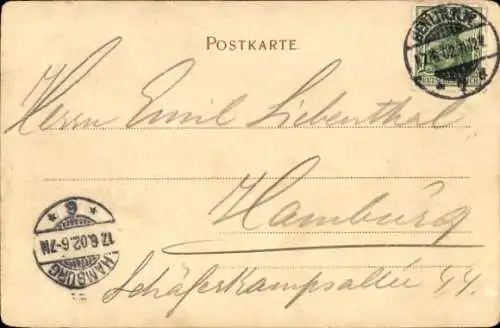 POSTKARTE
Herrn Emil Liebenthal
Hamburg
Schäferkampsallee 44.
HAMBURG
17.6.02.6-7N
* 6 *